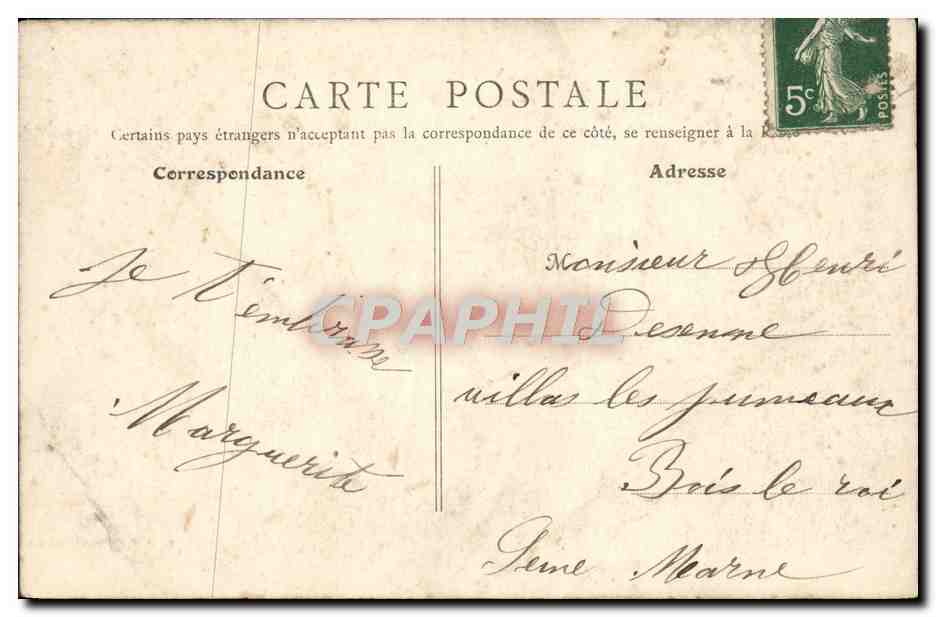 CARTE POSTALE
5c
POSTES
Certains pays étrangers n'acceptant pas la correspondance de ce côté, se renseigner à la
Correspondance
Adresse
Je t'embrasse
Marguerite
Monsieur Henri
Desenne
villas les jumeaux
Bois le roi
Seine Marne
CPAPHIL